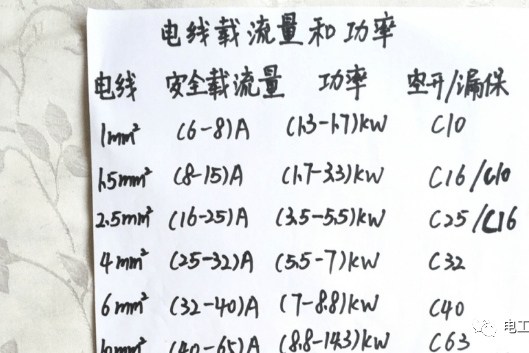 电线载流量和功率
电线 安全载流量 功率 空开/漏保
1mm² (6-8)A (1.3-1.7)kW C10
1.5mm² (8-15)A (1.7-3.3)kW C16/C10
2.5mm² (16-25)A (3.5-5.5)kW C25/C16
4mm² (25-32)A (5.5-7)kW C32
6mm² (32-40)A (7-8.8)kW C40
10mm² (40-65)A (8.8-14.3)kW C63
电工